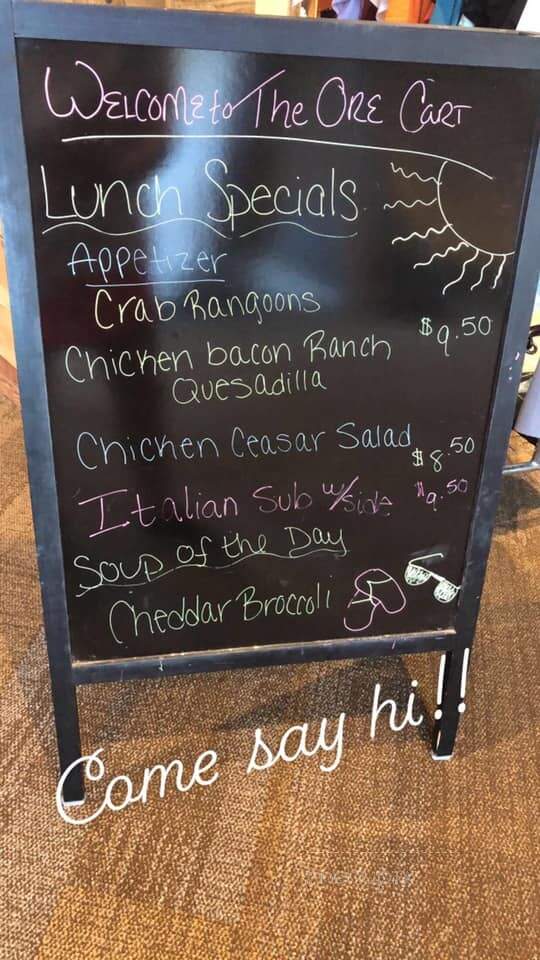 Welcome to The Ore Cart
Lunch Specials
Appetizer
Crab Rangoons
Chicken bacon Ranch $9.50
Quesadilla
Chicken Ceasar Salad $8.50
Italian Sub w/side $9.50
Soup of the Day
Cheddar Broccoli
Come say hi!!